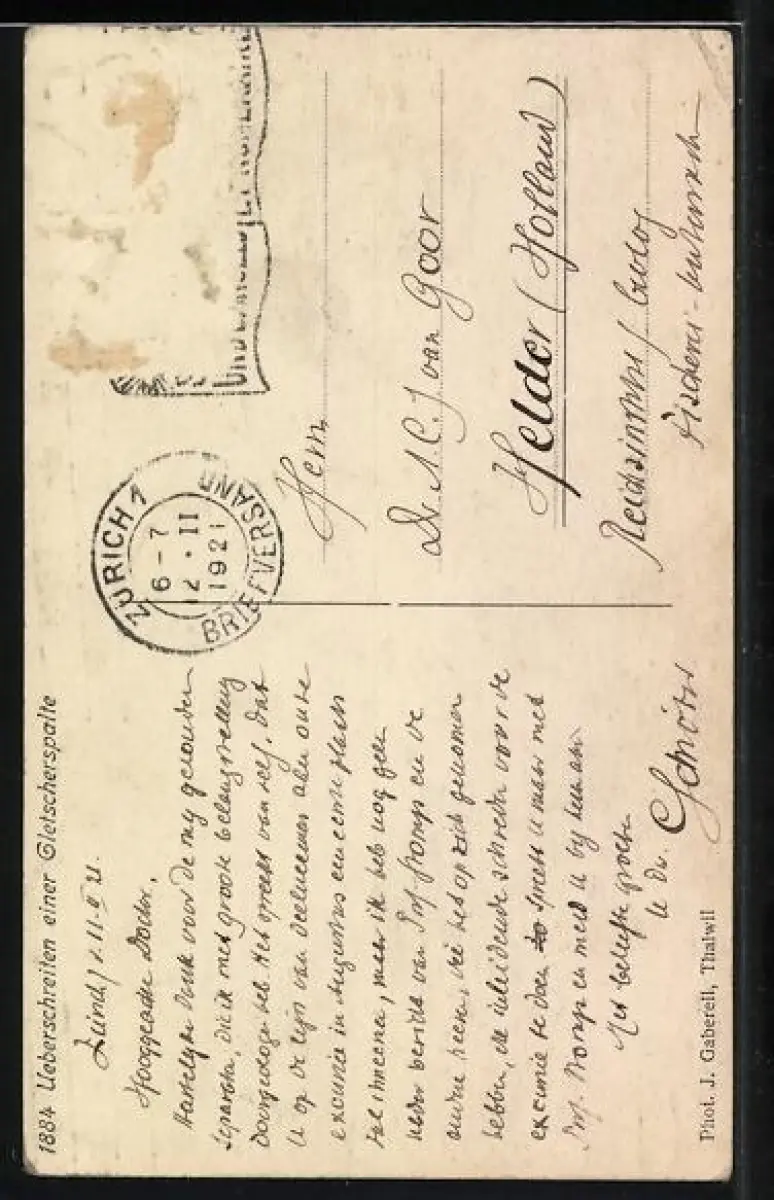 1884 Ueberschreiten einer Gletscherspalte
Hooggeachte Doctor,
Hartelyk dank voor de my gezonden
separata, die ik met groote belangstelling
Het spreekt van zelf, dat
U op de lyst van deelnemers aan onze
excursie in Augustus een eerste plaats
zal innemen, maar ik heb nog geen
nader bericht van Prof. Stomps en de
andre heeren, die het op zich genomen
hebben, de inleidende schreden voor de
excursie te doen. Spreekt U maar met
Prof. Stomps en meld U by hem aan.
Met beleefde groeten
U Dr.
Schröter
Phot. J. Gaberell, Thalwil
ZÜRICH 1
6-7
2.II
1921
BRIEFVERSAND
Herrn
Dr. A. C. J. van Goor
Helder (Holland)